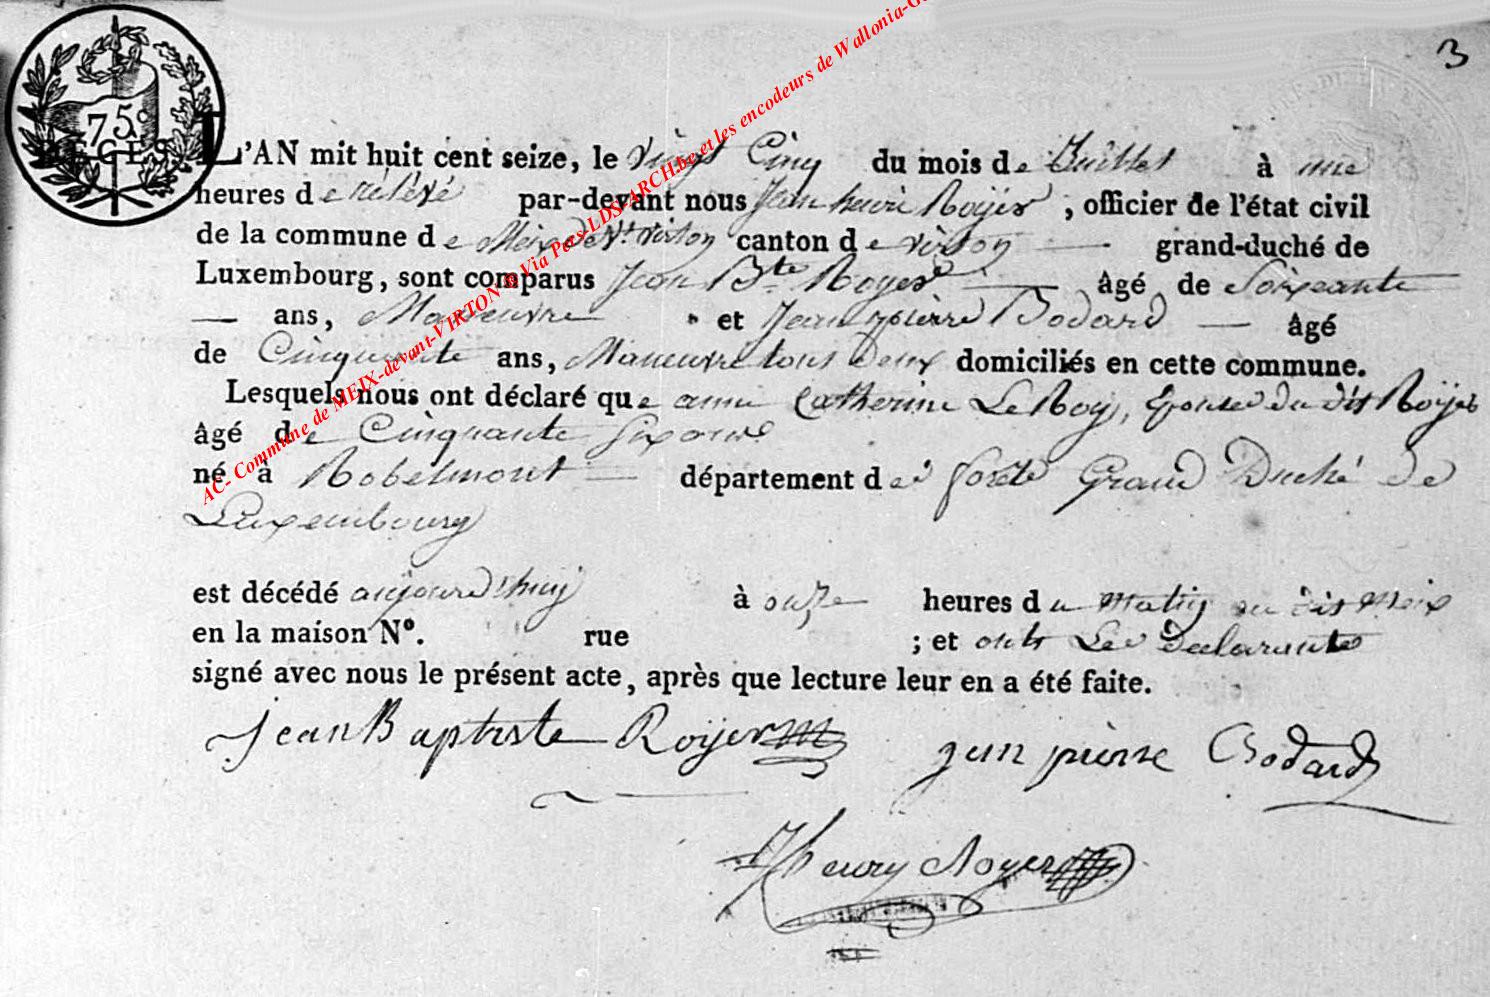 3
75c
DÉCÈS
L'AN mit huit cent seize, le vingt Cinq du mois de Juillet à une
heures de rélévé par-devant nous Jean henri Roijer, officier de l'état civil
de la commune de Meix devt virton canton de virton grand-duché de
Luxembourg, sont comparus Jean Bte Royer âgé de Soixeante
ans, Maneuvre et Jean pierre Bodard âgé
de Cinquante ans, Maneuvre tous deux domiciliés en cette commune.
Lesquels nous ont déclaré que anne Catherine LeRoy, Epouse du dit Roijer
âgé de Cinquante six ans
né à Robelmont département de forêt Grand Duché de
Luxembourg
est décédé aujourd'huy à onze heures du matin au dit Meix
en la maison N°. rue ; et onts Les Declarants
signé avec nous le présent acte, après que lecture leur en a été faite.
jean Baptiste Roijer jean pierre Bodard
JHenry Royer
AC- Commune de MEIX-devant-VIRTON @ Via Pers-LDS-ARCH.be et les encodeurs de Wallonia-G